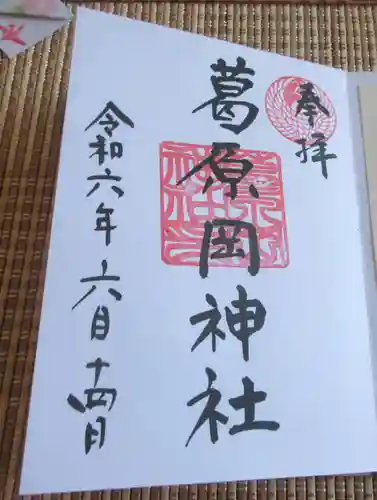 奉拝
葛原岡神社
令和六年六月十四日